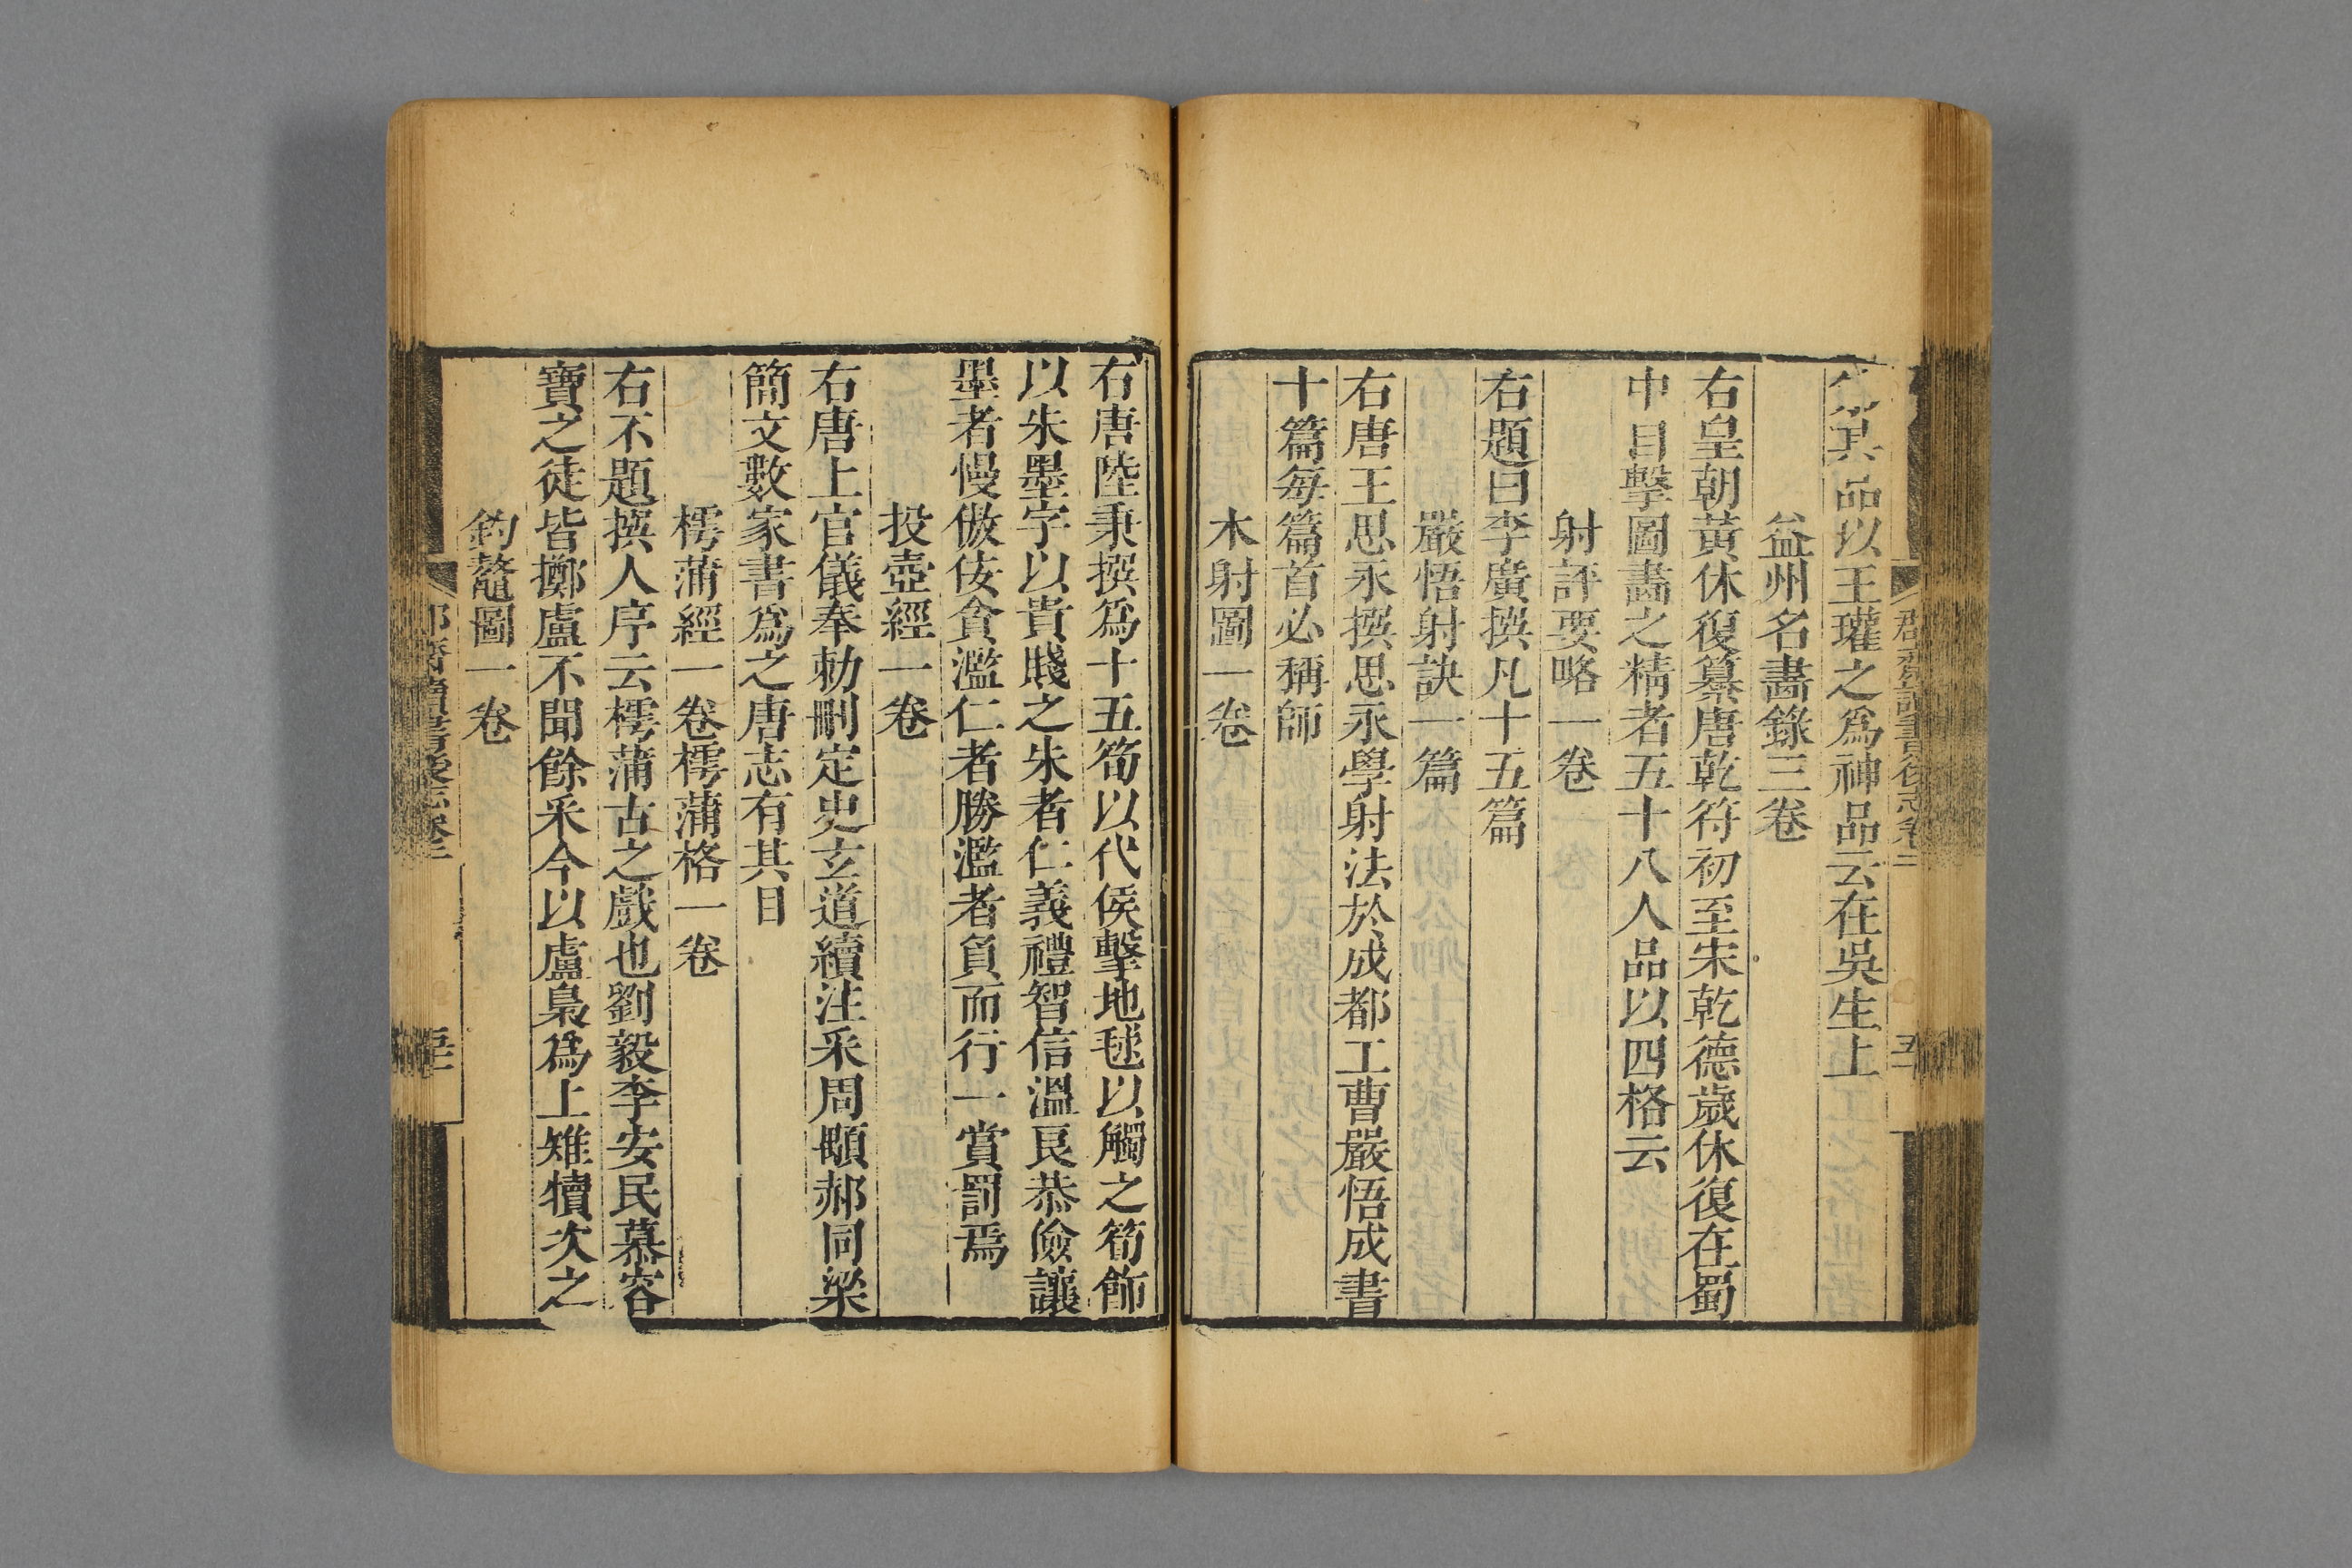 品以王瓘之爲神品云在吳生上
益州名畵錄三卷
右皇朝黃休復纂唐乾符初至宋乾德歲休復在蜀
中目擊圖畵之精者五十八人品以四格云
射評要略一卷
右題曰李廣撰凡十五篇
嚴悟射訣一篇
右唐王思永撰思永學射法於成都工曹嚴悟成書
十篇每篇首必稱師
木射圖一卷
右唐陸秉撰爲十五筍以代侯擊地毬以觸之筍飾
以朱墨字以貴賤之朱者仁義禮智信溫良恭儉讓
墨者慢傲佞貪濫仁者勝濫者負而行一賞罰焉
投壺經一卷
右唐上官儀奉勅刪定史玄道續注采周顒郝同梁
簡文數家書爲之唐志有其目
樗蒲經一卷樗蒲格一卷
右不題撰人序云樗蒲古之戲也劉毅李安民慕容
寶之徒皆擲盧不聞餘采今以盧梟爲上雉犢次之
釣鼇圖一卷